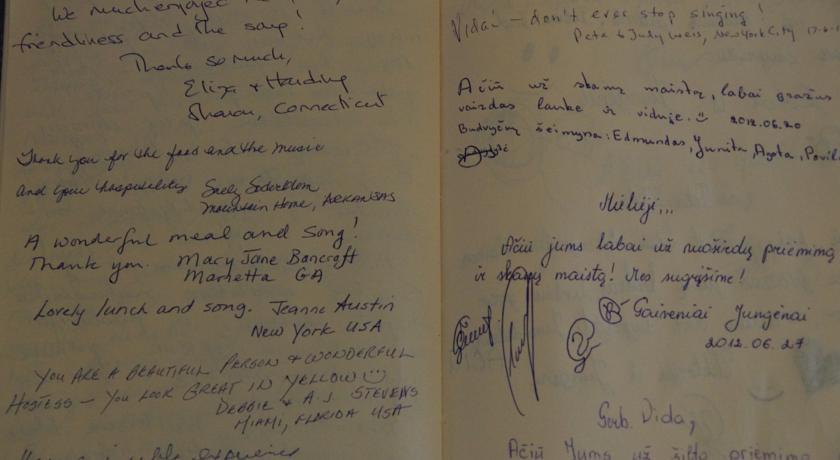 We much enjoyed
friendliness and the soup!
Thanks so much,
Eliza + Harding
Sharon, Connecticut
Thank you for the food and the music
and your hospitality Sally
Mountain Home, ARKANSAS
A wonderful meal and song!
Thank you. Mary Jane Bancroft
Marietta GA
Lovely lunch and song. Jeanne Austin
New York USA
YOU ARE A BEAUTIFUL PERSON & WONDERFUL
HOSTESS – YOU LOOK GREAT IN YELLOW ☺
DEBBIE & A.J. STEVENS
MIAMI, FLORIDA USA
Vidai – don't ever stop singing!
Pete & Judy Weis, New York City
Ačiū už skanų maistą, labai gražus
vaizdas lauke ir viduje. ☺ 2012.06.20
Budvyčių šeimyna: Edmundas, Jurita, Agota, Povil
Mielieji...
Ačiū jums labai už nuoširdų priėmimą
ir skanų maistą! Mes sugrįšime!
Gaireniai Jungėnai
2012.06.27
Gerb. Vida,
Ačiū Jums už šiltą priėmimą